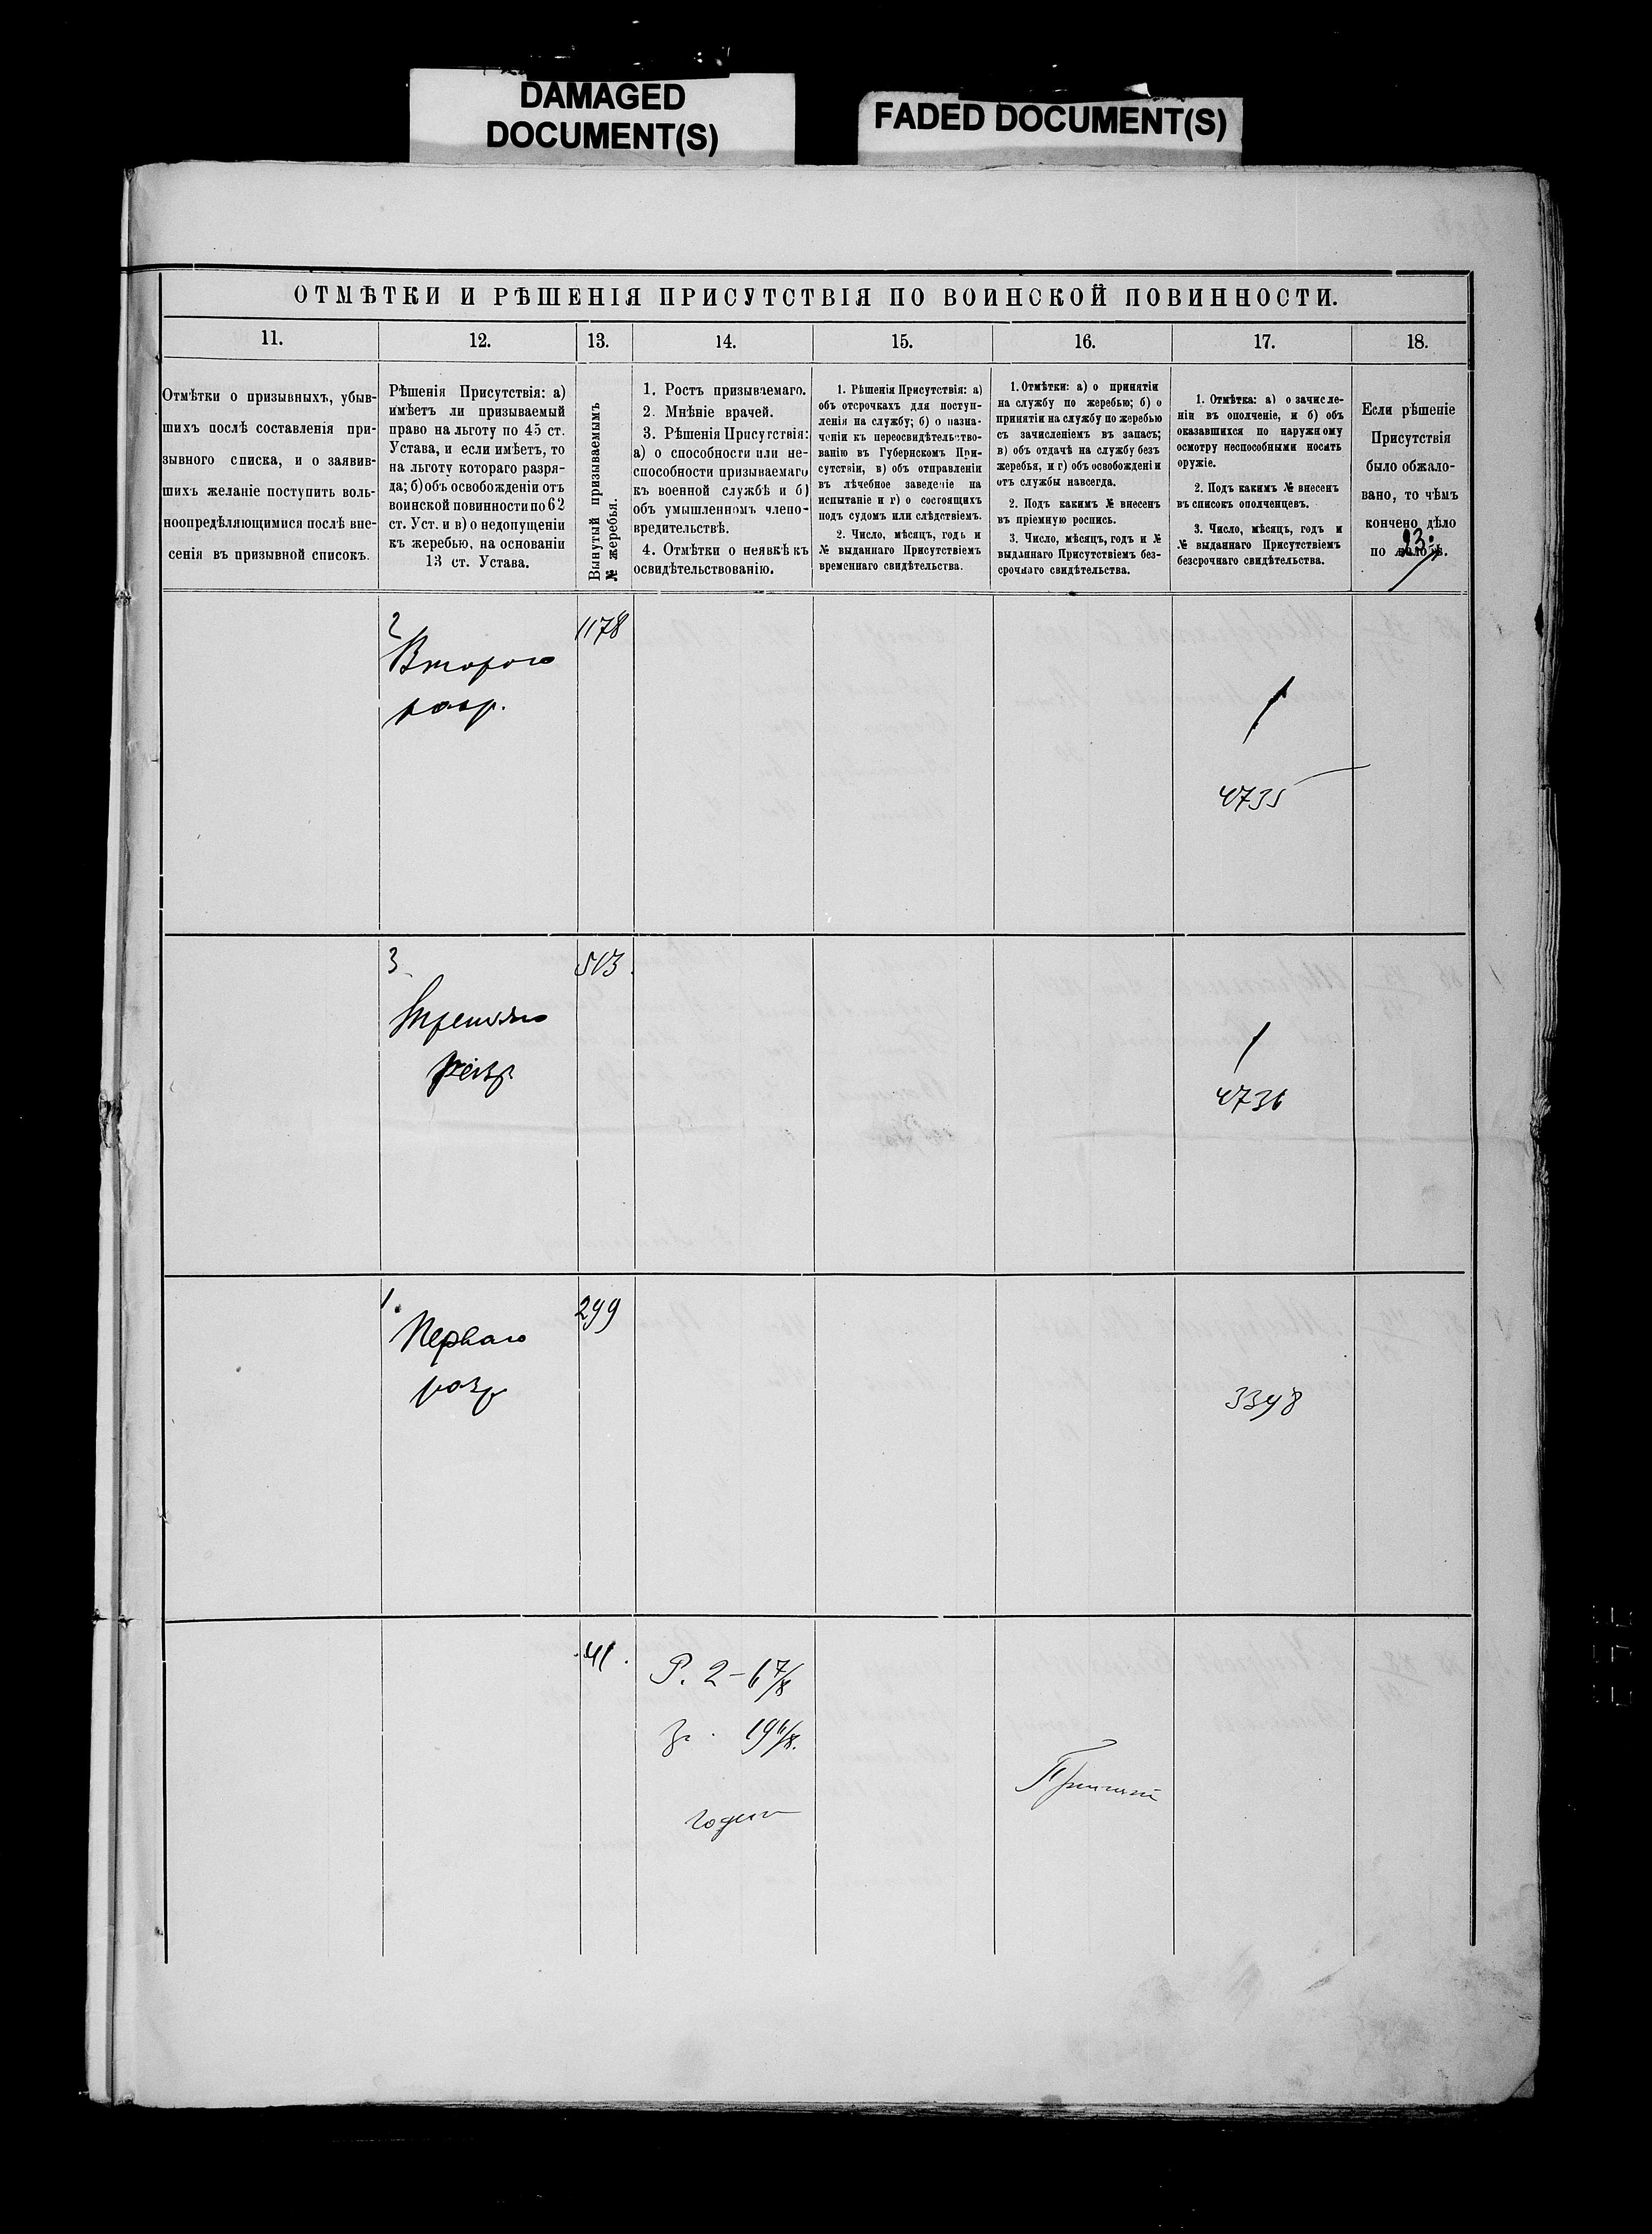 DAMAGED
DOCUMENT(S)
FADED DOCUMENT(S)
ОТМѢТКИ И РѢШЕНІЯ ПРИСУТСТВІЯ ПО ВОИНСКОЙ ПОВИННОСТИ.
11. 12. 13. 14. 15. 16. 17. 18.
Отмѣтки о призывныхъ, убыв-
шихъ послѣ составленія при-
зывного списка, и о заявив-
шихъ желаніе поступить воль-
ноопредѣляющимися послѣ вне-
сенія въ призывной списокъ.
Рѣшенія Присутствія: а)
имѣетъ ли призываемый
право на льготу по 45 ст.
Устава, и если имѣетъ, то
на льготу котораго разря-
да; б) объ освобожденіи отъ
воинской повинности по 62
ст. Уст. и в) о недопущеніи
къ жеребью, на основаніи
13 ст. Устава.
Вынутый призываемымъ
№ жеребья.
1. Ростъ призываемаго.
2. Мнѣніе врачей.
3. Рѣшенія Присутствія:
а) о способности или не-
способности призываемаго
къ военной службѣ и б)
объ умышленномъ члено-
вредительствѣ.
4. Отмѣтки о неявкѣ къ
освидѣтельствованію.
1. Рѣшенія Присутствія: а)
объ отсрочкахъ для поступ-
ленія на службу; б) о назна-
ченіи къ переосвидѣтельство-
ванію въ Губернскомъ При-
сутствіи, в) объ отправленіи
въ лѣчебное заведеніе на
испытаніе и г) о состоящихъ
подъ судомъ или слѣдствіемъ.
2. Число, мѣсяцъ, годъ и
№ выданнаго Присутствіемъ
временнаго свидѣтельства.
1. Отмѣтки: а) о принятіи
на службу по жеребью; б) о
принятіи на службу по жеребью
съ зачисленіемъ въ запасъ;
в) объ отдачѣ на службу безъ
жеребья, и г) объ освобожденіи
отъ службы навсегда.
2. Подъ какимъ № внесенъ
въ пріемную роспись.
3. Число, мѣсяцъ, годъ и №
выданнаго Присутствіемъ без-
срочнаго свидѣтельства.
1. Отмѣтка: а) о зачисле-
ніи въ ополченіе, и б) объ
оказавшихся по наружному
осмотру неспособными носить
оружіе.
2. Подъ какимъ № внесенъ
въ списокъ ополченцевъ.
3. Число, мѣсяцъ, годъ и
№ выданнаго Присутствіемъ
безсрочнаго свидѣтельства.
Если рѣшеніе
Присутствія
было обжало-
вано, то чѣмъ
кончено дѣло
по жалобѣ.
93.
2
Второго
разр.
1178
4735
3
Третьяго
разр
513
4736
1.
Перваго
разр
299
3398
41.
Р. 2-6 7/8
Г. 19 6/8.
годенъ
Принятъ